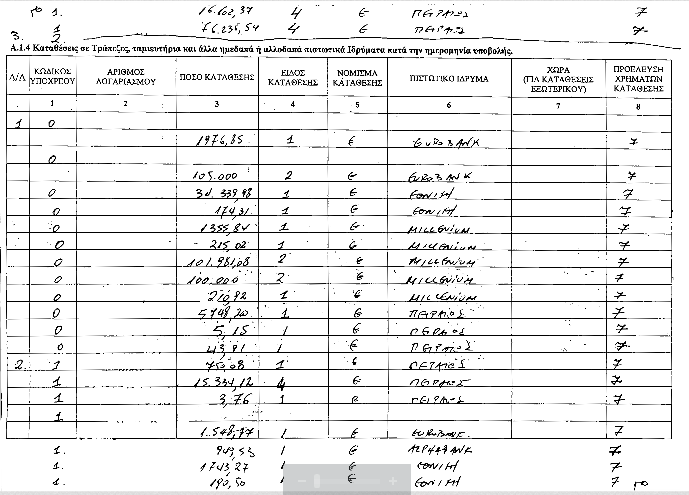 1. 16.602,37 4 € ΠΕΙΡΑΙΩΣ 7
3. 1 4 € ΠΕΙΡΑΙΩΣ 7
2
Α.1.4 Καταθέσεις σε Τράπεζες, ταμιευτήρια και άλλα ημεδαπά ή αλλοδαπά πιστωτικά Ιδρύματα κατά την ημερομηνία υποβολής.
Α/Α ΚΩΔΙΚΟΣ ΥΠΟΧΡΕΟΥ ΑΡΙΘΜΟΣ ΛΟΓΑΡΙΑΣΜΟΥ ΠΟΣΟ ΚΑΤΑΘΕΣΗΣ ΕΙΔΟΣ ΚΑΤΑΘΕΣΗΣ ΝΟΜΙΣΜΑ ΚΑΤΑΘΕΣΗΣ ΠΙΣΤΩΤΙΚΟ ΙΔΡΥΜΑ ΧΩΡΑ (ΓΙΑ ΚΑΤΑΘΕΣΕΙΣ ΕΞΩΤΕΡΙΚΟΥ) ΠΡΟΕΛΕΥΣΗ ΧΡΗΜΑΤΩΝ ΚΑΤΑΘΕΣΗΣ
1 2 3 4 5 6 7 8
1 0
1976,85 1 € EUROBANK 7
0
105.000 2 € EUROBANK 7
0 34.339,98 1 € ΕΘΝΙΚΗ 7
0 174,31 1 € ΕΘΝΙΚΗ 7
0 1355,84 1 € MILLENIUM 7
0 215,02 1 € MILLENIUM 7
0 101.981,08 2 € MILLENIUM 7
0 100.000 2 € MILLENIUM 7
0 210,92 1 € MILLENIUM 7
0 5748,20 1 € ΠΕΙΡΑΙΩΣ 7
0 5,15 1 € ΠΕΙΡΑΙΩΣ 7
0 43,91 1 € ΠΕΙΡΑΙΩΣ 7
2 1 750,08 1 € ΠΕΙΡΑΙΩΣ 7
1 15.334,12 4 € ΠΕΙΡΑΙΩΣ 7
1 3,76 1 € ΠΕΙΡΑΙΩΣ 7
1
1.548,77 1 € EUROBANK 7
1. 949,53 1 € ALPHABANK 7
1. 1743,27 1 € ΕΘΝΙΚΗ 7
1. 190,50 1 € ΕΘΝΙΚΗ 7